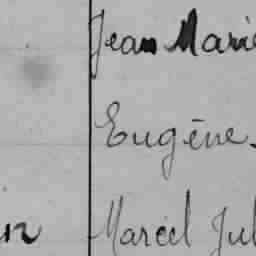 Jean Marie
Eugène
Marcel Jul